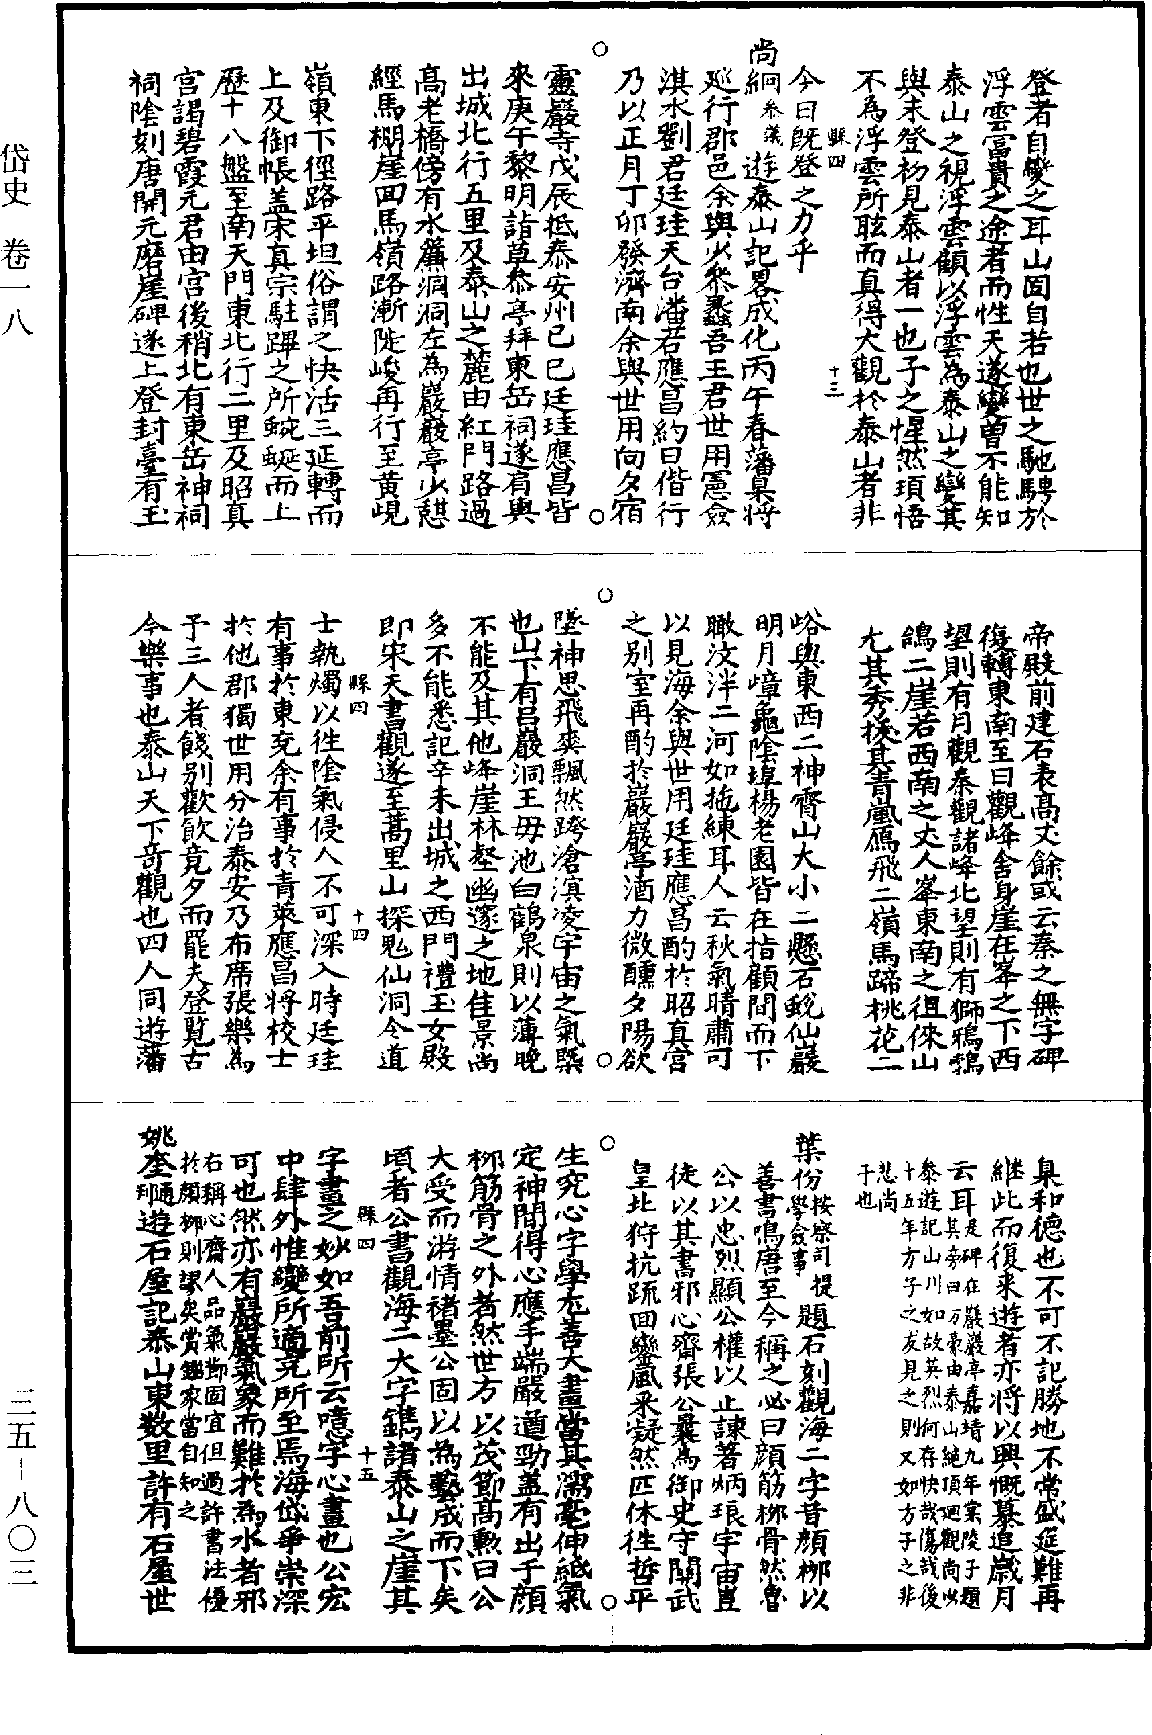 岱史　卷一八
三五－八〇三
登者自變之耳山固自若也世之馳騁於
浮雲富貴之途者而性天遂變曽不能知
泰山之視浮雲顧以浮雲為泰山之變其
與未登初見泰山者一也子之惺然頊悟
不為浮雲所眩而真得大觀於泰山者非
縣四　十三
今日旣登之力乎
尚絅叅議遊泰山記畧成化丙午春藩臬將
廵行郡邑余與少叅蠡吾王君世用憲僉
淇水劉君廷珪天台潘君應昌約日偕行
乃以正月丁卯發濟南余與世用向夕宿
靈巖寺戊辰抵泰安州己巳廷珪應昌皆
來庚午黎明詣草叅亭拜東岳祠遂肩輿
出城北行五里及泰山之麓由紅門路過
高老橋傍有水簾洞洞左為巖巖亭少憇
經馬棚崖回馬嶺路漸陡峻再行至黄峴
嶺東下徑路平坦俗謂之快活三延轉而
上及御帳盖宋真宗駐蹕之所蜿蜒而上
歷十八盤至南天門東北行二里及昭真
宮謁碧霞元君由宮後稍北有東岳神祠
祠陰刻唐開元磨崖碑遂上登封臺有玉
帝殿前建石表高丈餘或云秦之無字碑
復轉東南至日觀峰舍身崖在峯之下西
望則有月觀秦觀諸峰北望則有獅鴉鵓
鴿二崖若西南之丈人峯東南之徂徠山
尤其秀拔其青嵐鴈飛二嶺馬蹄桃花二
峪與東西二神霄山大小二懸石蛻仙巖
明月嶂龜陰埠楊老園皆在指顧間而下
瞰汶泮二河如拖練耳人云秋氣晴肅可
以見海余與世用廷珪應昌酌於昭真宮
之别室再酌於巖巖亭酒力微醺夕陽欲
墜神思飛爽飄然跨滄溟凌宇宙之氣槩
也山下有呂巖洞王毋池白鶴泉則以薄晚
不能及其他峰崖林壑幽邃之地佳景尚
多不能悉記辛未出城之西門禮玉女殿
即宋天書觀遂至蒿里山探鬼仙洞令道
縣四　十四
士執燭以徃陰氣侵人不可深入時廷珪
有事於東兖余有事於青萊應昌將校士
於他郡獨世用分治泰安乃布席張樂為
予三人者餞别歡飲竟夕而罷夫登覧古
今樂事也泰山天下竒觀也四人同遊藩
臬和德也不可不記勝地不常盛筵難再
継此而復来遊者亦將以興慨慕追歲月
云耳是碑在巖巖亭嘉靖九年棠陵子題
其旁曰方豪由泰山絶頂廻觀尚少
叅遊記山川如故英烈何存快哉傷哉後
十五年方子之友見之則又如方子之非
悲尚
子也
葉份按察司僉事提學題石刻觀海二字昔顔栁以
善書鳴唐至今稱之必曰顔筋栁骨然魯
公以忠烈顯公權以止諌著炳琅宇宙豈
徒以其書邪心齊張公曩為御史守關武
皇北狩抗疏回鑾風采凝然匹休徃哲平
生究心字學尤善大書當其濡毫伸紙氣
定神閒得心應手端嚴遒勁盖有出于顔
栁筋骨之外者然世方以茂節高勲曰公
大受而游情褚墨公固以為藝成而下矣
頃者公書觀海二大字鐫諸泰山之崖其
縣四　十五
字畫之妙如吾前所云噫字心畫也公宏
中肆外惟變所適克所至焉海岱爭崇深
可也然亦有巖巖氣象而難於為水者邪
右稱心齋人品氣節固宜但過許書法優
於顔栁則謬矣賞鑑家當自知之
姚奎通判遊石屋記泰山東数里許有石屋世